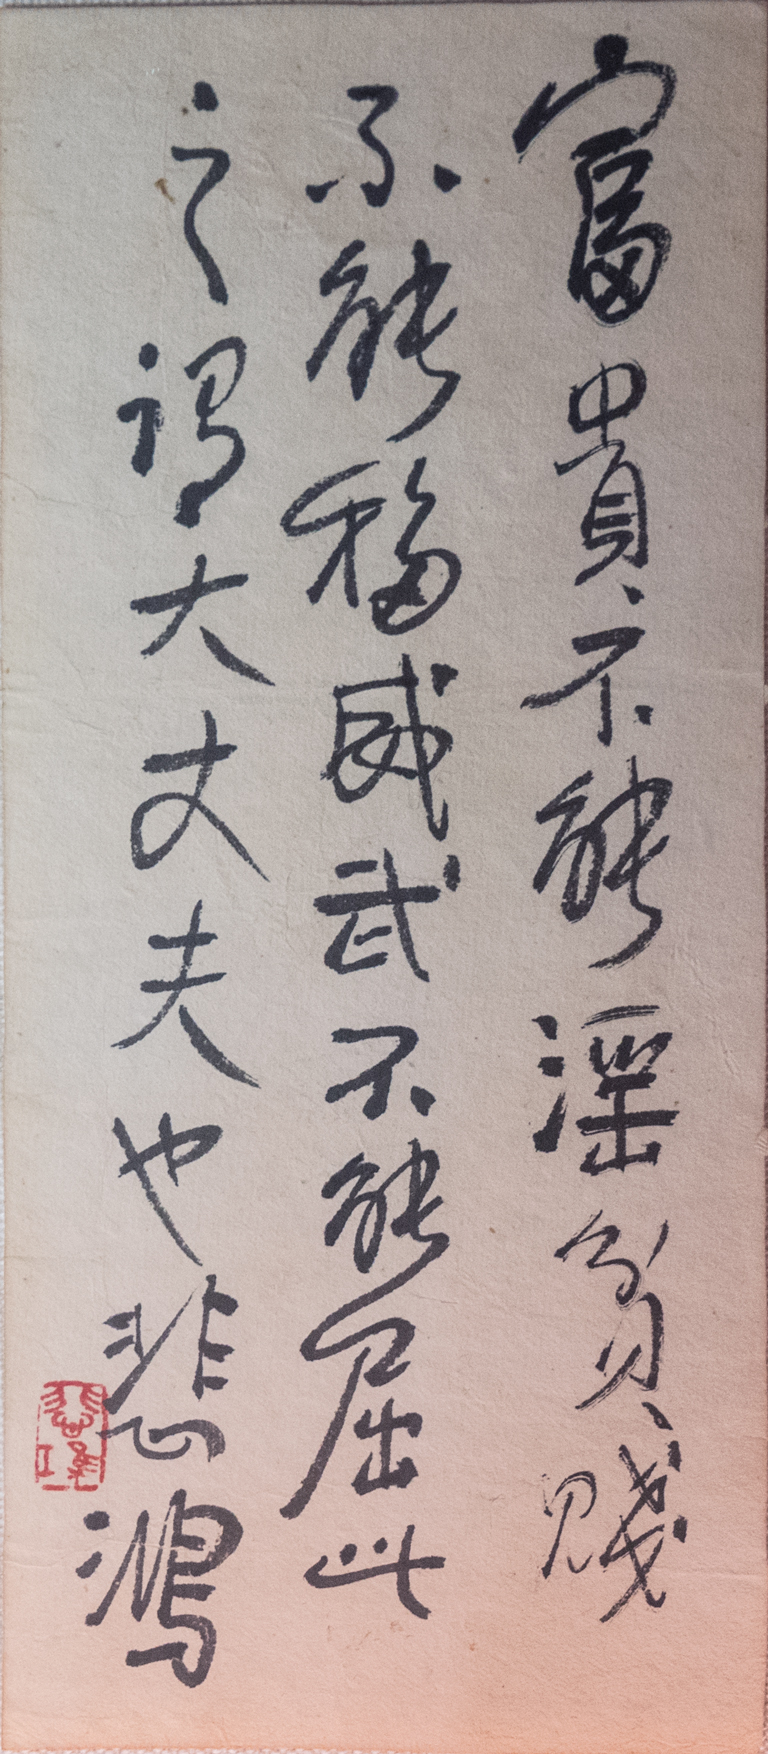 富貴不能淫貧賤
不能移威武不能屈此
之謂大丈夫也悲鴻
悲鴻